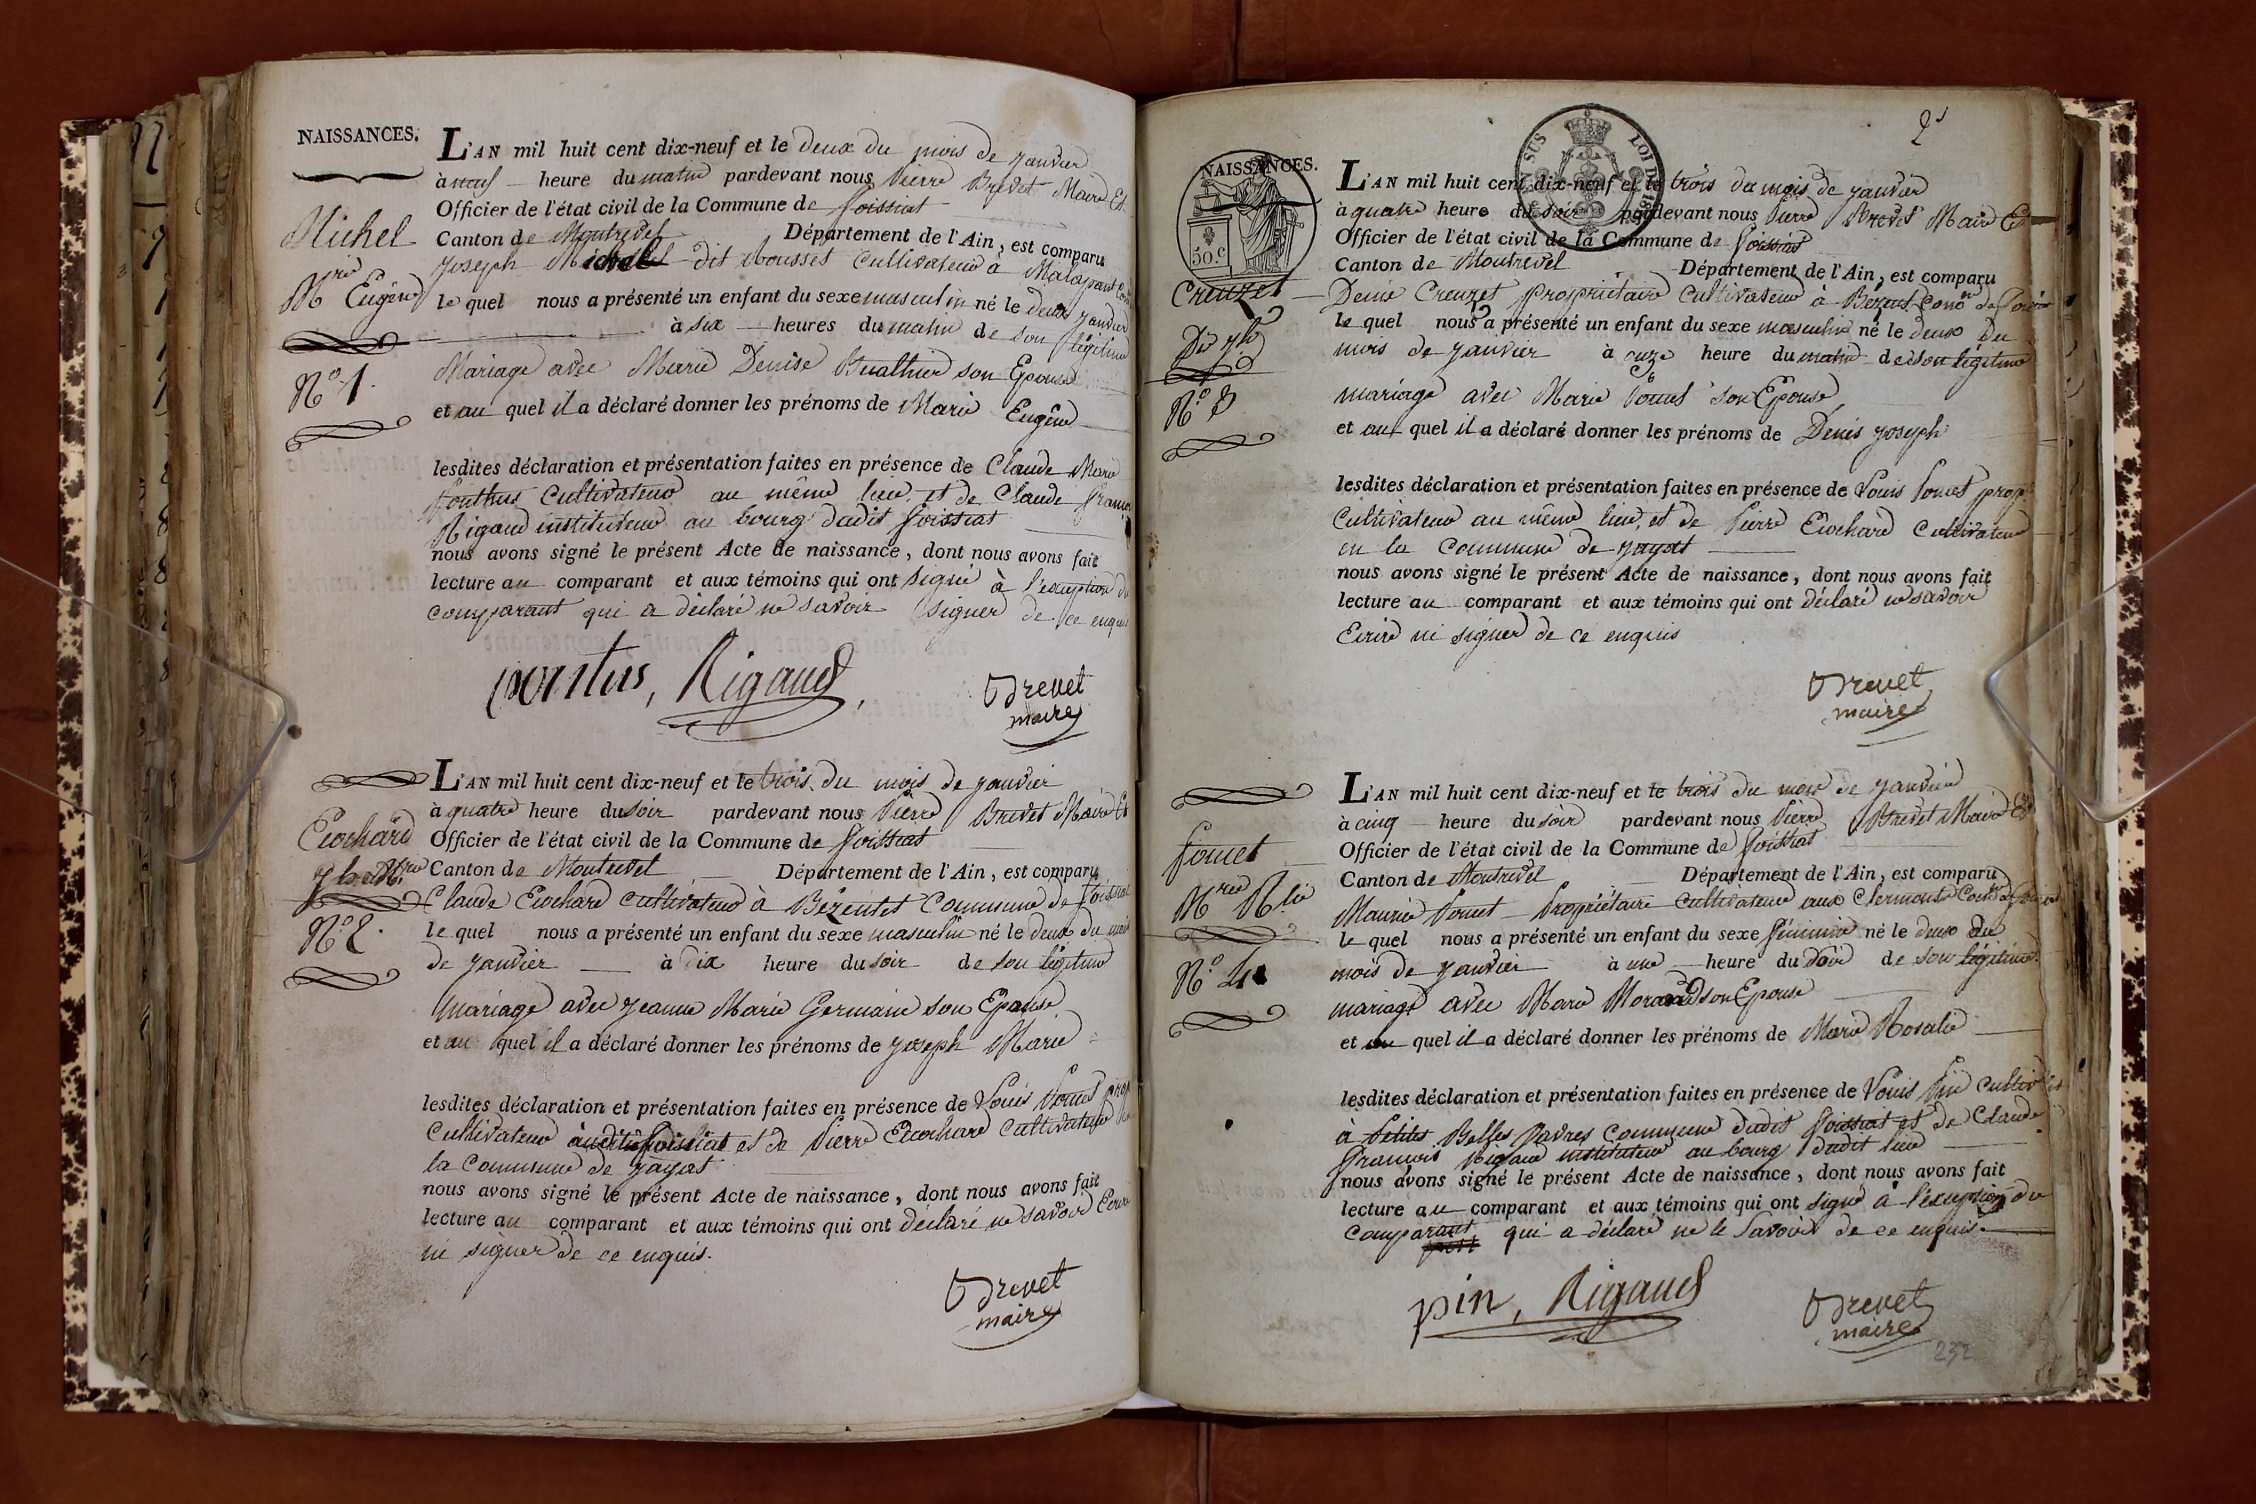 NAISSANCES.
L'AN mil huit cent dix-neuf et le deux du mois de janvier
à neuf heure du matin pardevant nous Pierre Brevet Maire Et
Officier de l'état civil de la Commune de foissiat
Michel
Canton de Montrevel Département de l'Ain, est comparu
Joseph Michel dit Cultivateur à
Mrie Eugène
le quel nous a présenté un enfant du sexe masculin né le deux janvier
à six heures du matin de son légitime
Mariage avec Marie Denise son Epouse
No. 1.
et au quel il a déclaré donner les prénoms de Marie Eugène
lesdites déclaration et présentation faites en présence de Claude Marie
Cultivateur au même lieu, et de Claude
Rigaud instituteur au bourg dudit foissiat
nous avons signé le présent Acte de naissance, dont nous avons fait
lecture au comparant et aux témoins qui ont signé à l'exception du
comparant qui a déclaré ne savoir signer de ce enquis
pontus, Rigaud,
Brevet
maire
L'AN mil huit cent dix-neuf et le trois du mois de janvier
à quatre heure du soir pardevant nous Pierre Brevet Maire Et
Ecochard
Officier de l'état civil de la Commune de foissiat
Jh Mrie
Canton de Montrevel Département de l'Ain, est comparu
Claude Ecochard cultivateur à Bézentet Commune de foissiat
No. 2.
le quel nous a présenté un enfant du sexe masculin né le deux du mois
de janvier à dix heure du soir de son légitime
mariage avec Jeanne Marie Germain son Epouse
et au quel il a déclaré donner les prénoms de Joseph Marie
lesdites déclaration et présentation faites en présence de Louis
Cultivateur et de Pierre Ecochard Cultivateur
la Commune de Jayat
nous avons signé le présent Acte de naissance, dont nous avons fait
lecture au comparant et aux témoins qui ont déclaré ne savoir Ecrire
ni signer de ce enquis.
Brevet
maire
2
SUS LOI DE 18
NAISSANCES.
50.c
L'AN mil huit cent dix-neuf et le trois du mois de janvier
à quatre heure du soir pardevant nous Pierre Brevet Maire Et
Officier de l'état civil de la Commune de foissiat
Canton de Montrevel Département de l'Ain, est comparu
Creuzet
Denis Creuzet propriétaire Cultivateur à
le quel nous a présenté un enfant du sexe masculin né le deux du
Dis Jh
mois de janvier à onze heure du matin de son légitime
No. 3
mariage avec Marie son Epouse
et au quel il a déclaré donner les prénoms de Denis Joseph
lesdites déclaration et présentation faites en présence de Louis
Cultivateur au même lieu, et de Pierre Ecochard Cultivateur
en la Commune de Jayat
nous avons signé le présent Acte de naissance, dont nous avons fait
lecture au comparant et aux témoins qui ont déclaré ne savoir
Ecrire ni signer de ce enquis
Brevet
maire
L'AN mil huit cent dix-neuf et le trois du mois de janvier
à cinq heure du soir pardevant nous Pierre Brevet Maire Et
Officier de l'état civil de la Commune de foissiat
Canton de Montrevel Département de l'Ain, est comparu
Mrie Rlie
Maurice Propriétaire Cultivateur aux
le quel nous a présenté un enfant du sexe féminin né le deux du
No. 4
mois de janvier à une heure du soir de son légitime
mariage avec Marie Morand son Epouse
et au quel il a déclaré donner les prénoms de Marie Rosalie
lesdites déclaration et présentation faites en présence de Louis Pin
à Commune dudit foissiat et de Claude
François Rigaud instituteur au bourg dudit lieu
nous avons signé le présent Acte de naissance, dont nous avons fait
lecture au comparant et aux témoins qui ont signé à l'exception du
comparant qui a déclaré ne le savoir de ce enquis.
pin, Rigaud
Brevet
maire
232